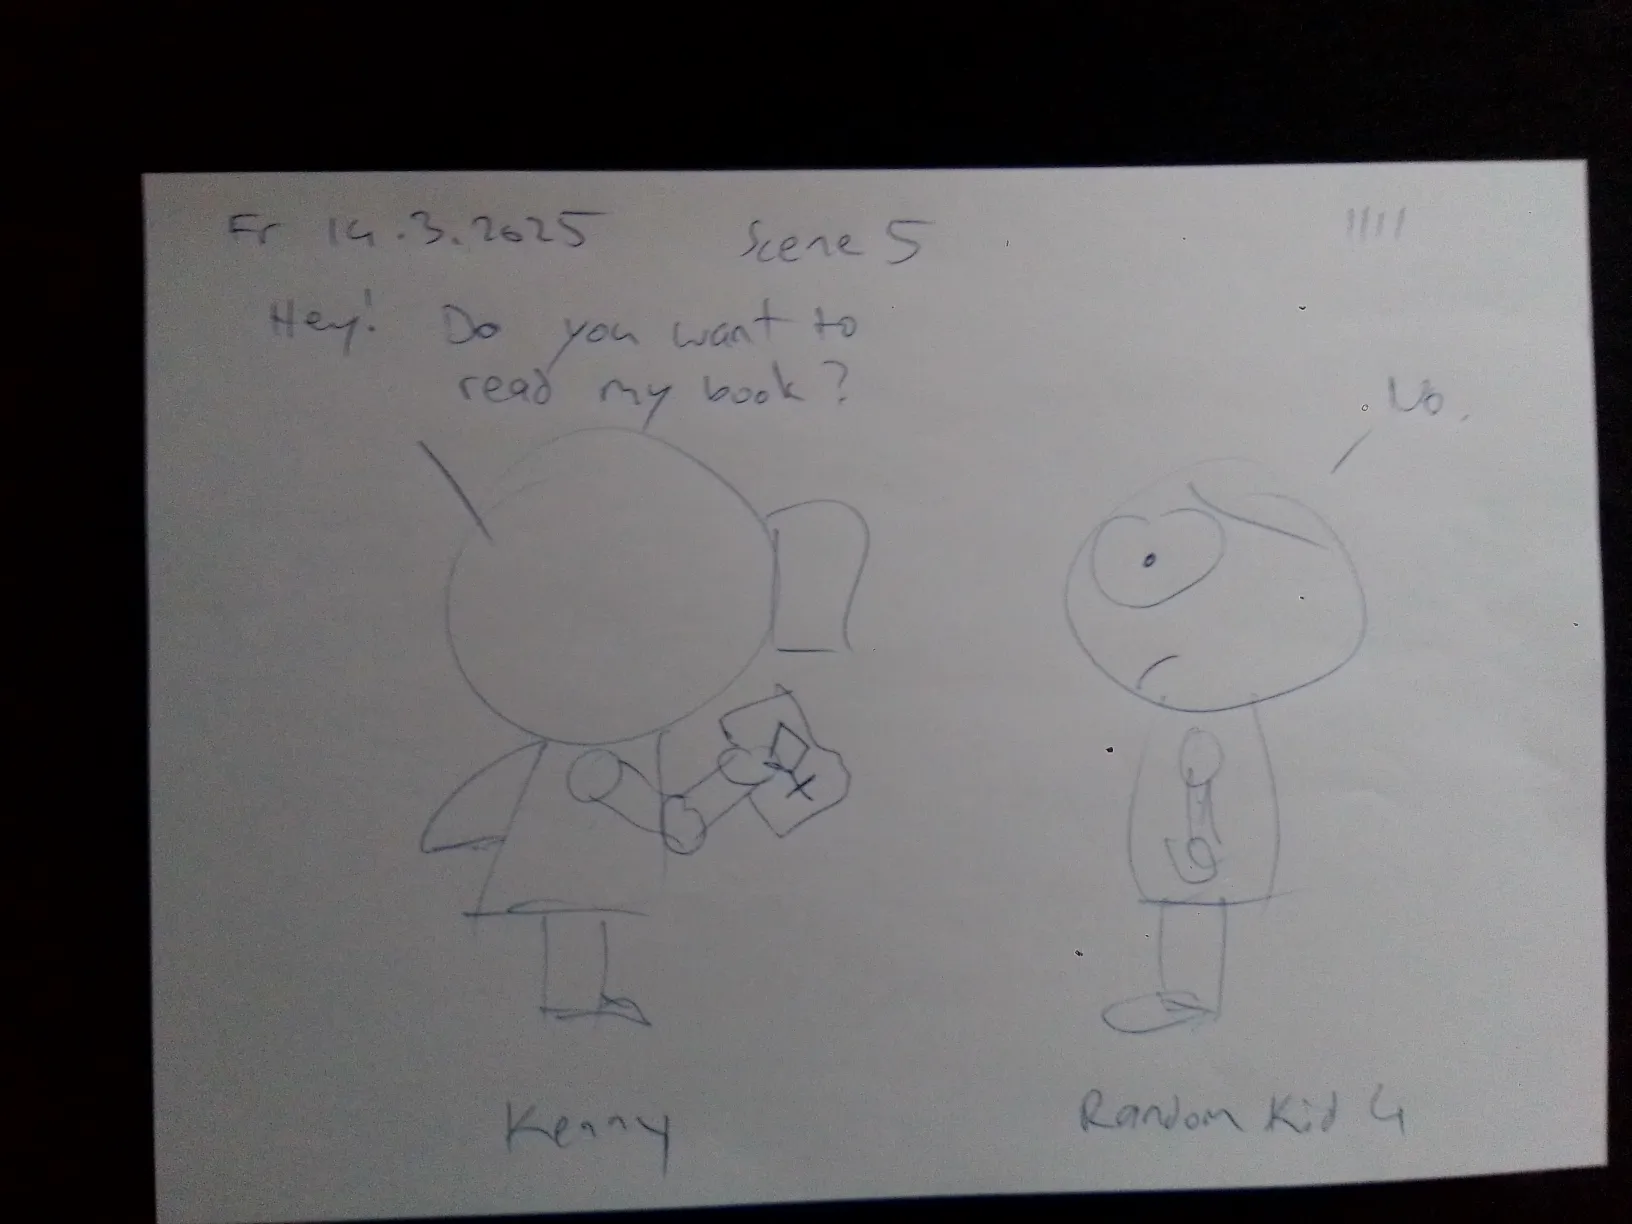 Fr 14.3.2025 Scene 5
Hey! Do you want to
read my book?
No.
Kenny
Random Kid 4